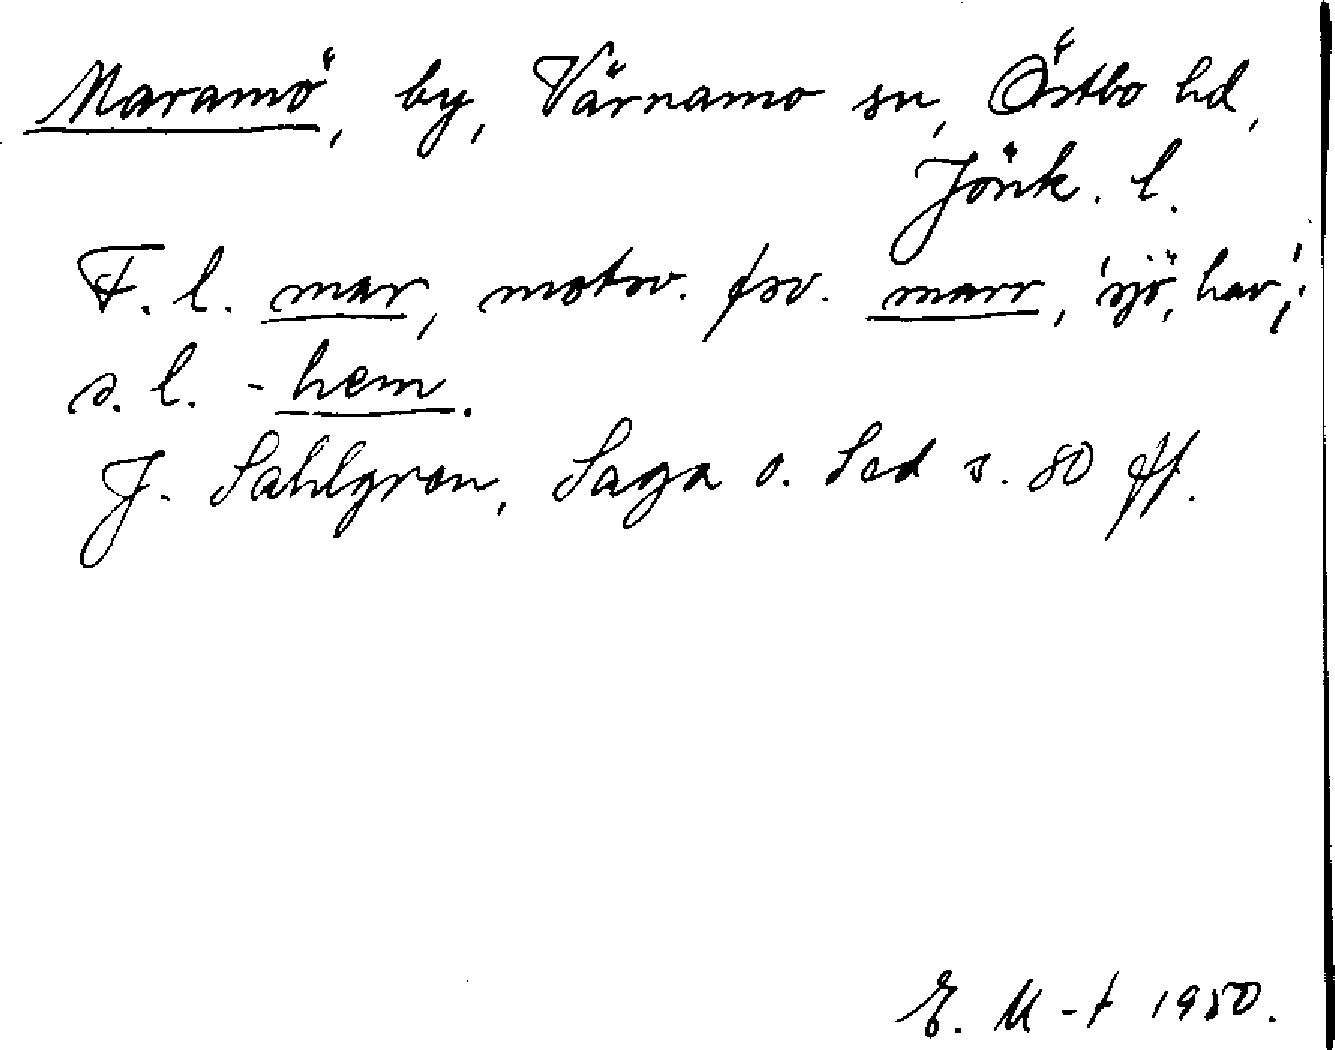 Maramö, by, Värnamo sn, Östbo hd,
Jönk. l.
F. l. mar, motsv. fsv. marr, 'sjö, hav';
s. l. -hem.
J. Sahlgren, Saga o. Sed s. 80 ff.
E. M-t 1950.